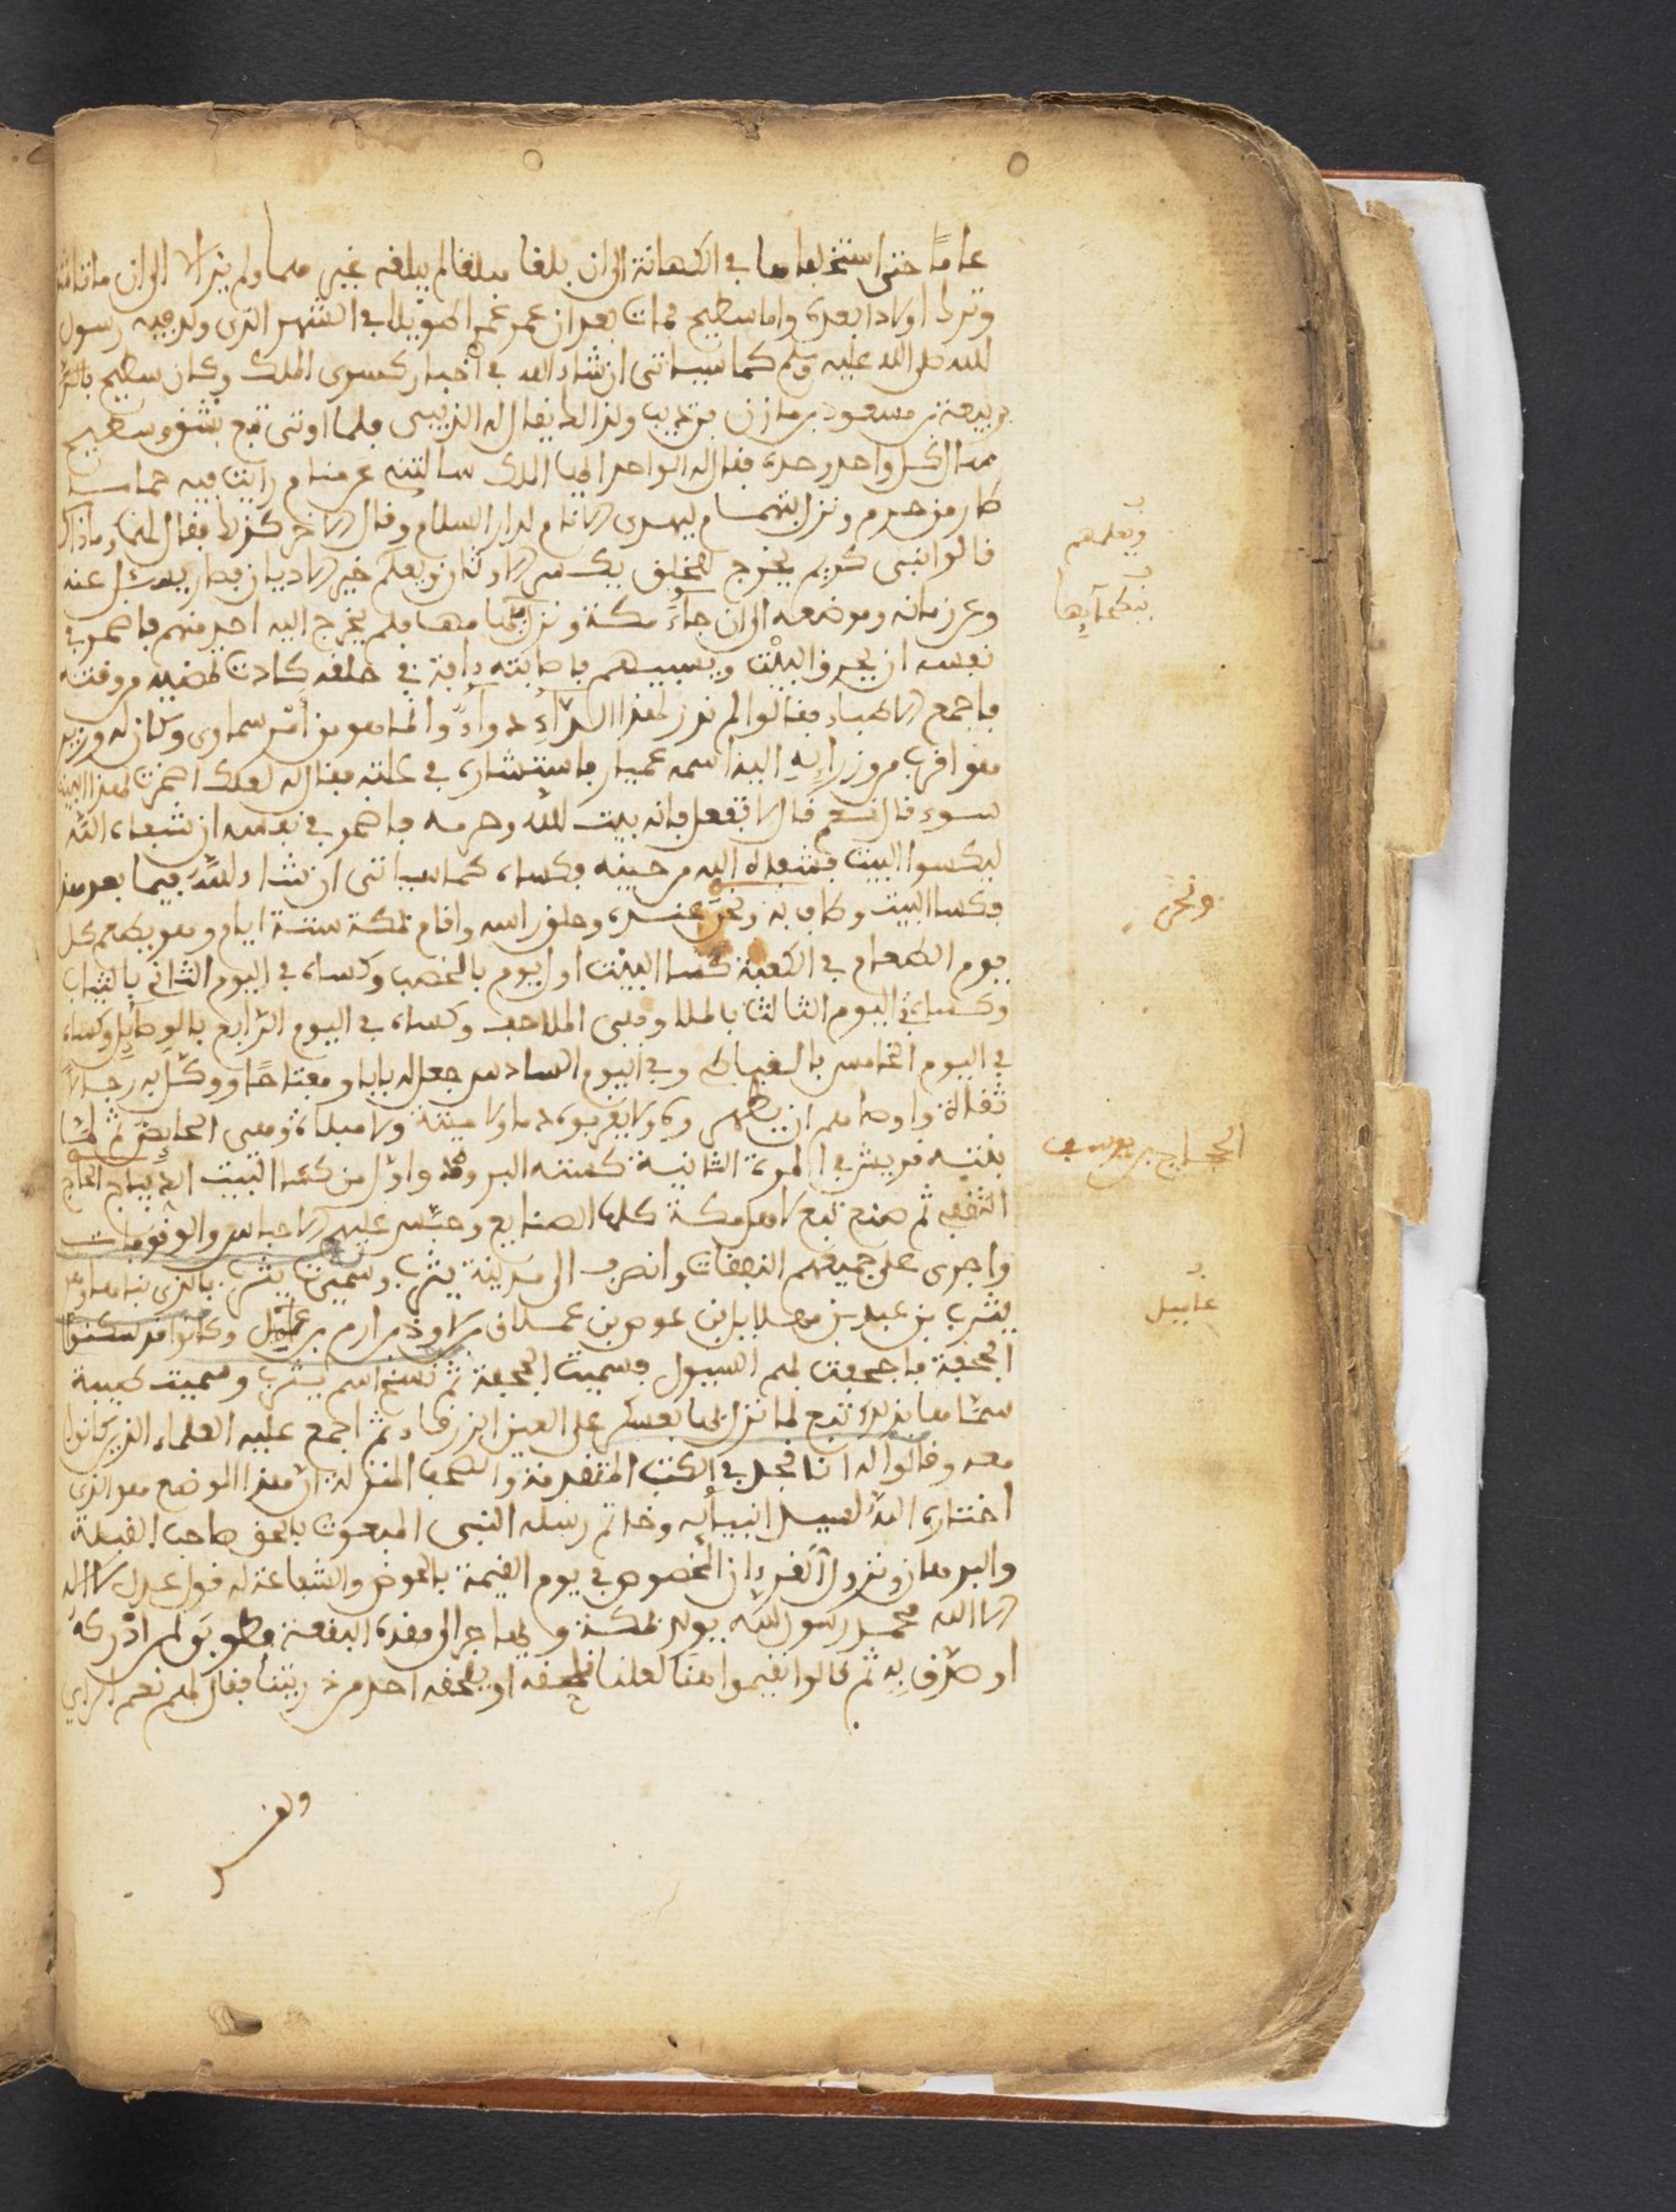 عاما حتى استخلفاهما في الكهانة الى ان بلغا مبلغا لم يبلغه غيرهما ولم يزالا الى ان ماتا
وتركا اولادا بعده واما سطيح فمات بعد ان عمر عمرا طويلا في الشهر الذي ولد فيه رسول
الله صلى الله عليه وسلم كما سياتي ان شاء الله في اخبار كسرى الملك وكان سطيح
ربيعة بن مسعود بن مازن بن ذيب ولذالك يقال له الذيبي فلما اوتي تبع بشق وسطيح
سال كل واحد وحده فقال له الواحد ايها الملك سالتني عن منام رايت فيه
طار من حرم ونزل بتهام ليهدي الانام لدار السلام وقال الاخر كذلك فقال لهما وما ذاك
قالوا نبي كريم يخرج للخلق يكسر الاوثان ويعلم خير الاديان فصار يسئل عنه
وعن زمانه وموضعه الى ان جاء مكة ونزل فلم يخرج اليه احد منهم فاضمر في
نفسه ان يحرق البيت ويسبيهم فاصابته داية في حلقه كادت من وقته
فاجمع الاطباء فقالوا لم نر لهذا الداء دواء وانما هو من امر سماوي وكان له وزير
هو اقرب من وزرايه اليه اسمه عميار فاستشاره في علته فقال له لعلك اضمرت لهذا البيت
سوء قال نعم قال لا تفعل فانه بيت الله وحرمه فاضمر في نفسه ان شفاه الله
ليكسوا البيت فشفاه الله من حينه فكساه كما سياتي ان شاء الله فيما بعد هذا
فكسا البيت وطاف به ونحر عنده وحلق راسه واقام بمكة ستة ايام وهو يطعم كل
يوم الطعام في الكعبة كسا البيت اول يوم بالخصب وكساه في اليوم الثاني بالثياب
وكساه في اليوم الثالث بالملا وهي الملاحف وكساه في اليوم الرابع بالوصايل وكساه
في اليوم الخامس بالقباطي وفي اليوم السادس جعل له بابا ومفتاحا ووكل به رجالا
ثقاة واوصاهم ان يطهروه ولا يقربوه دما ولا ميتة ولا ميلاة وهي الحايض ثم لما
بنته قريش في المرة الثانية كسته البرود واول من كسا البيت الديباج الحجاج
الثقفي ثم صنع تبع لاهل مكة كلها الصنايع وحبس عليهم الاحباس والوقوفات
واجرى على جميعهم النفقات وانصرف الى مدينة يثرب وسميت يثرب بالذي بناها وهو
يثرب بن عبيد بن مهلايل بن عوص بن عملاق بن لاوذ بن ارم بن وكانوا قد سكنوا
الجحفة فاجحفت لهم السيول فسميت الجحفة ثم نسخ اسم يثرب وسميت طيبة
سماها بذلك تبع لما نزل بها بعسكره على العين الزرقاء ثم اجمع عليه العلماء الذين كانوا
معه وقالوا له انا نجد في الكتب المتقدمة والصحف المنزلة ان هذا الموضع هو الذي
اختاره الله لسيد انبيائه وخاتم رسله النبي المبعوث بالحق صاحب القبلة
والبرهان ونزول القرءان المخصوص في يوم القيمة بالحوض والشفاعة له قول عدل لا اله
الا الله محمد رسول الله يولد بمكة ويهاجر الى هذه البقعة فطوبى لمن ادركه
او صدق به ثم قالوا نقيموا هنا لعلنا نلحقه او يلحقه احد من ذريتنا فقال لهم نعم الراي
ويعلمهم
ونحر
الحجاج بن يوسف
عابيل